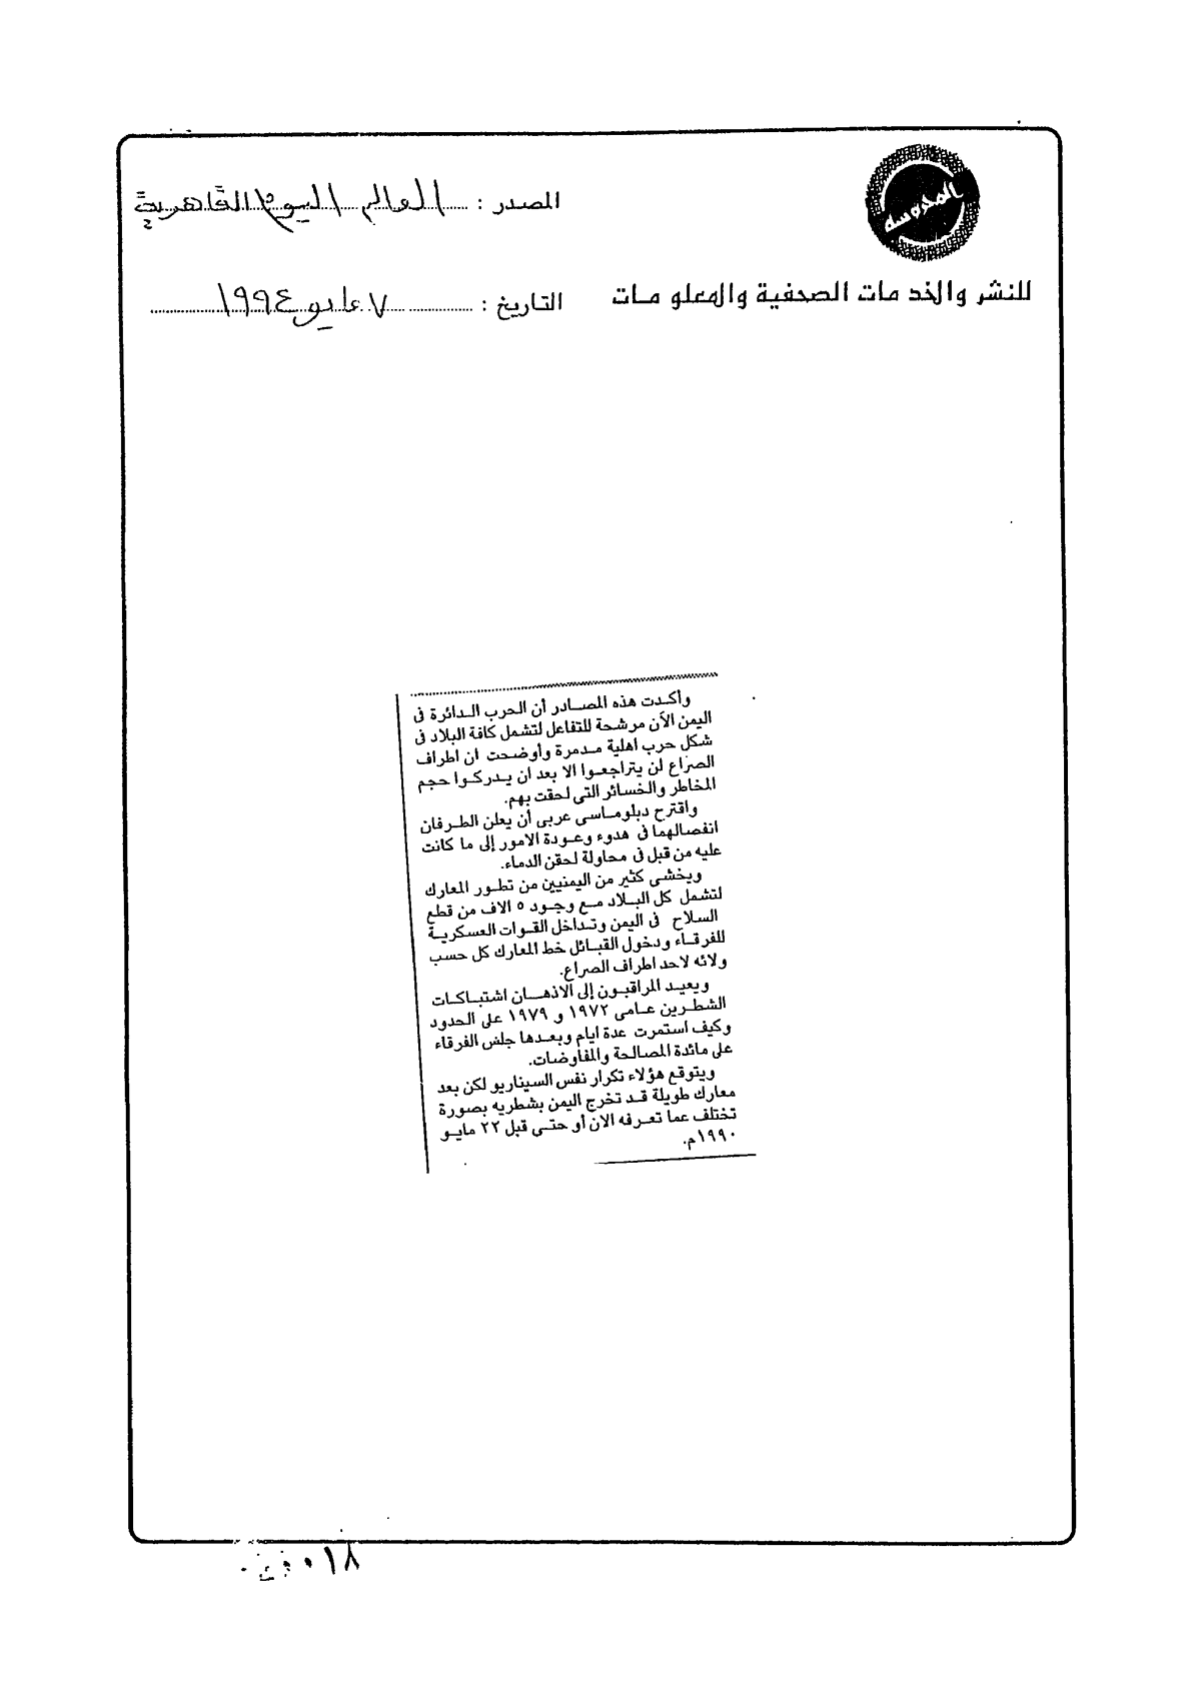 المحروسة
للنشر والخدمات الصحفية والمعلومات
المصدر : العالم اليوم القاهرية
التاريخ : ٧ مايو ١٩٩٤
وأكدت هذه المصادر أن الحرب الدائرة فى
اليمن الآن مرشحة للتفاعل لتشمل كافة البلاد فى
شكل حرب اهلية مدمرة وأوضحت ان اطراف
الصراع لن يتراجعوا الا بعد ان يدركوا حجم
المخاطر والخسائر التى لحقت بهم.
واقترح دبلوماسى عربى أن يعلن الطرفان
انفصالهما فى هدوء وعودة الامور إلى ما كانت
عليه من قبل فى محاولة لحقن الدماء.
ويخشى كثير من اليمنيين من تطور المعارك
لتشمل كل البلاد مع وجود ٥ الاف من قطع
السلاح فى اليمن وتداخل القوات العسكرية
للفرقاء ودخول القبائل خط المعارك كل حسب
ولائه لاحد اطراف الصراع.
ويعيد المراقبون إلى الاذهان اشتباكات
الشطرين عامى ١٩٧٢ و ١٩٧٩ على الحدود
وكيف استمرت عدة ايام وبعدها جلس الفرقاء
على مائدة المصالحة والمفاوضات.
ويتوقع هؤلاء تكرار نفس السيناريو لكن بعد
معارك طويلة قد تخرج اليمن بشطريه بصورة
تختلف عما تعرفه الان أو حتى قبل ٢٢ مايو
١٩٩٠م.